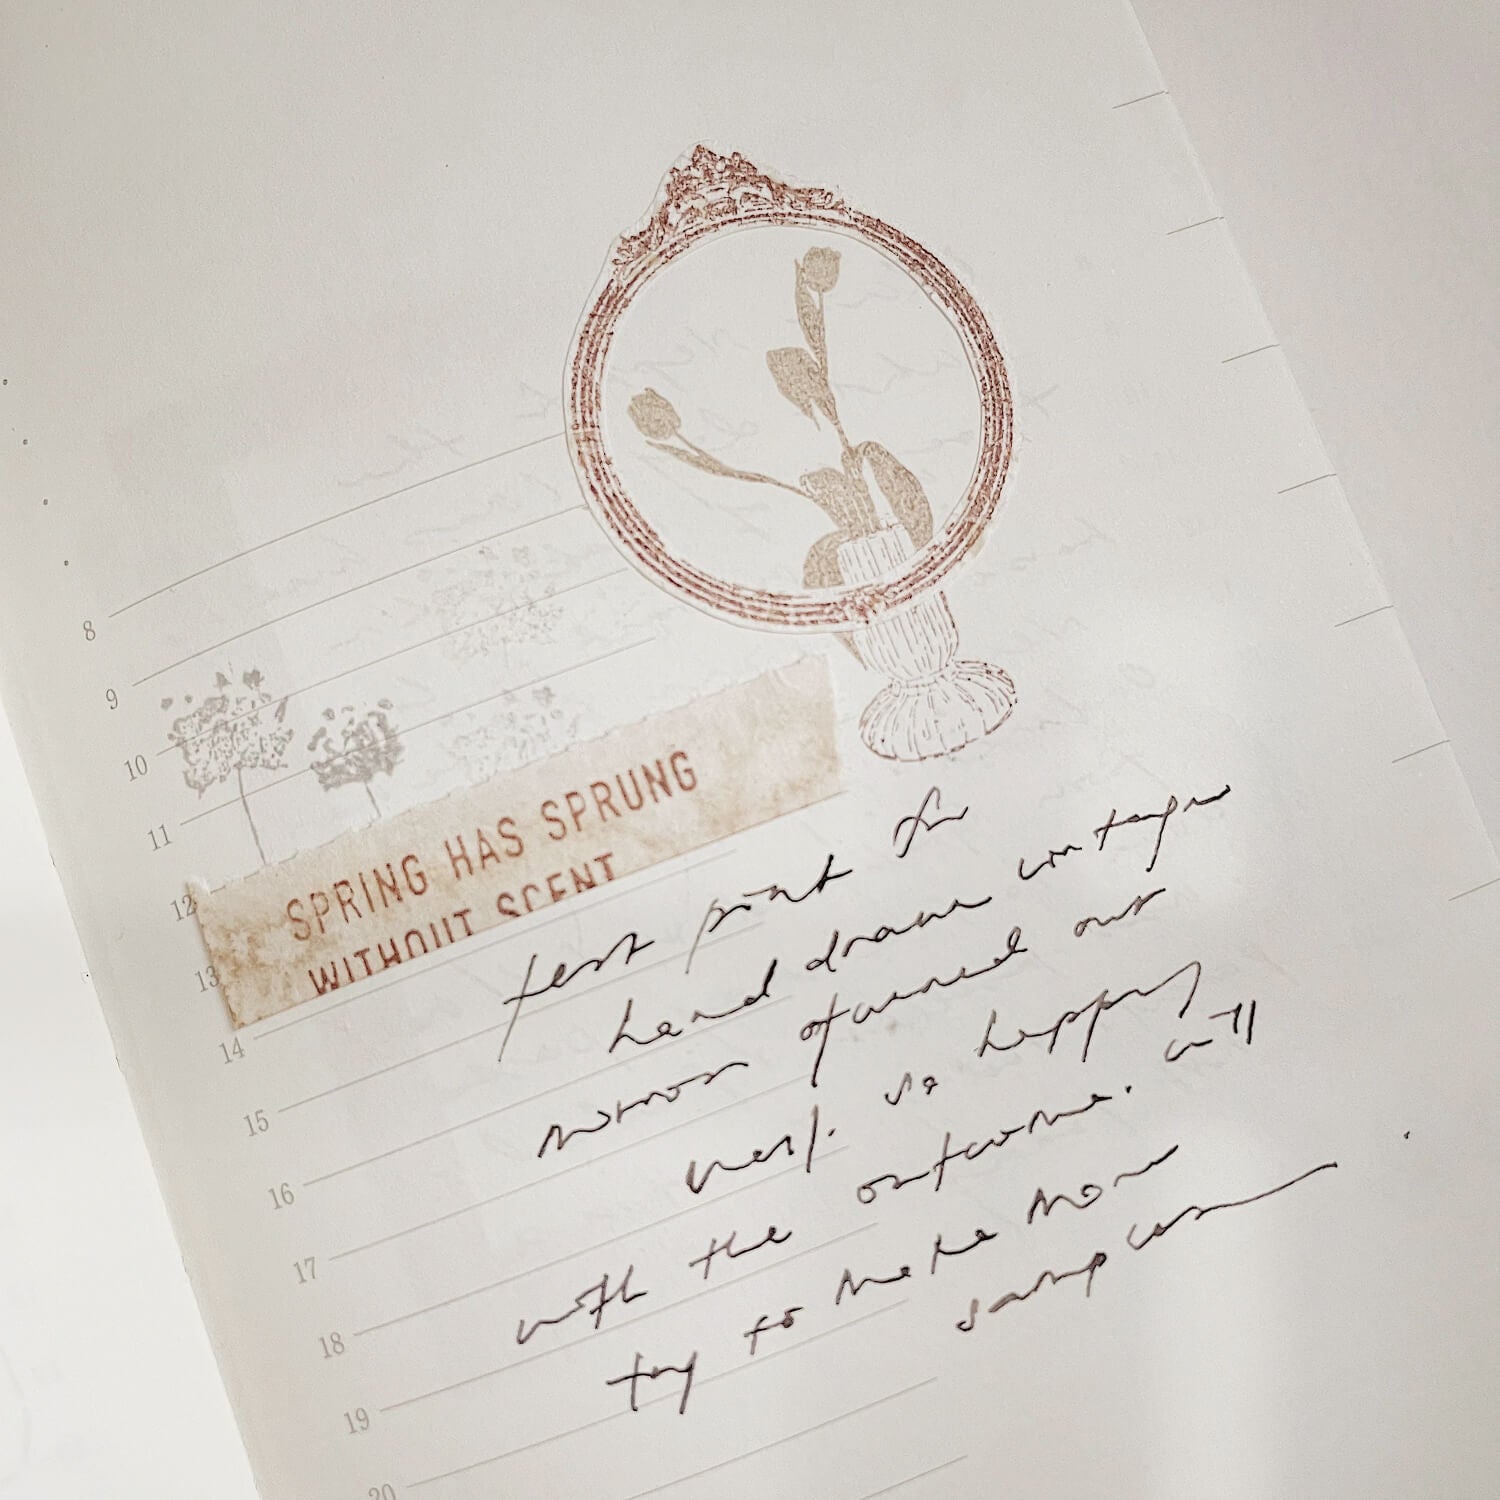 8
9
10
11
12
13
14
15
16
17
18
19
20
SPRING HAS SPRUNG
WITHOUT SCENT
test print for
hand drawn vintage
mirror turned out
well. so happy
with the outcome. will
try to make more
samples